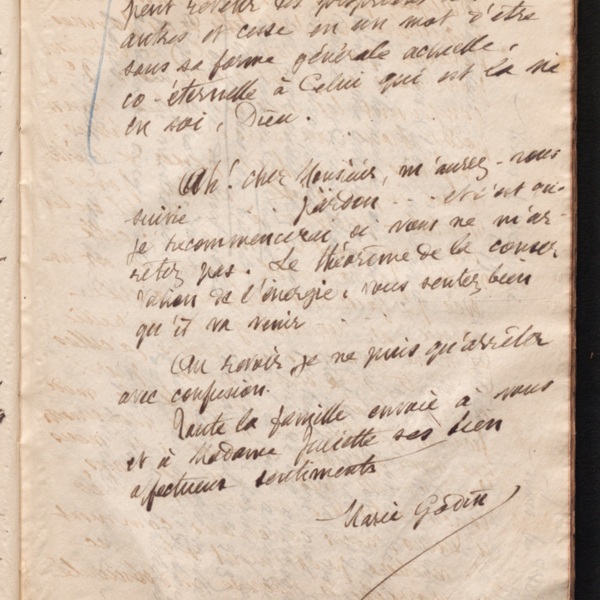 peut revêter ses propriétés
autres et cesse en un mot d'être
sous sa forme générale actuelle,
co-éternelle à Celui qui est la vie
en soi, Dieu.
Ah! cher Monsieur, m'aurez-vous
suivie . . . pardon . . . et c'est que
je recommencerai si vous ne m'ar-
rêtez pas. Le théorème de la conser
vation de l'énergie, vous sentez bien
qu'il va venir . . .
Au revoir je ne puis qu'arrêter
avec confusion.
Toute la famille envoie à vous
et à Madame ses bien
affectueux sentiments
Marie Godin